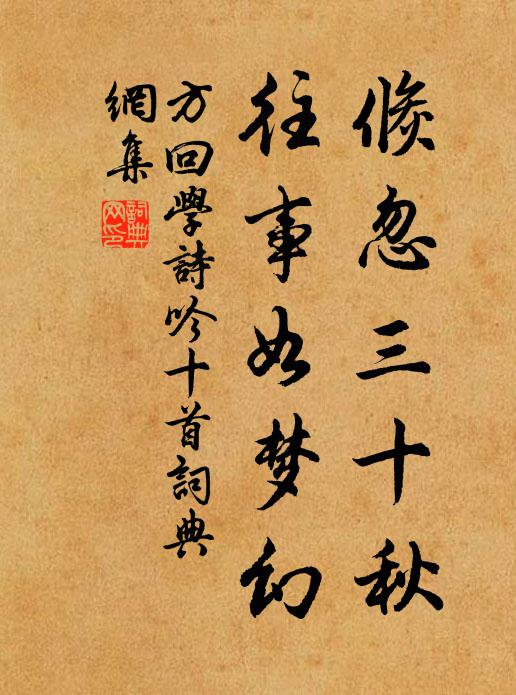 倐忽三十秋
往事如梦幻
方回學詩吟十首詞典
網集
詞典
网印